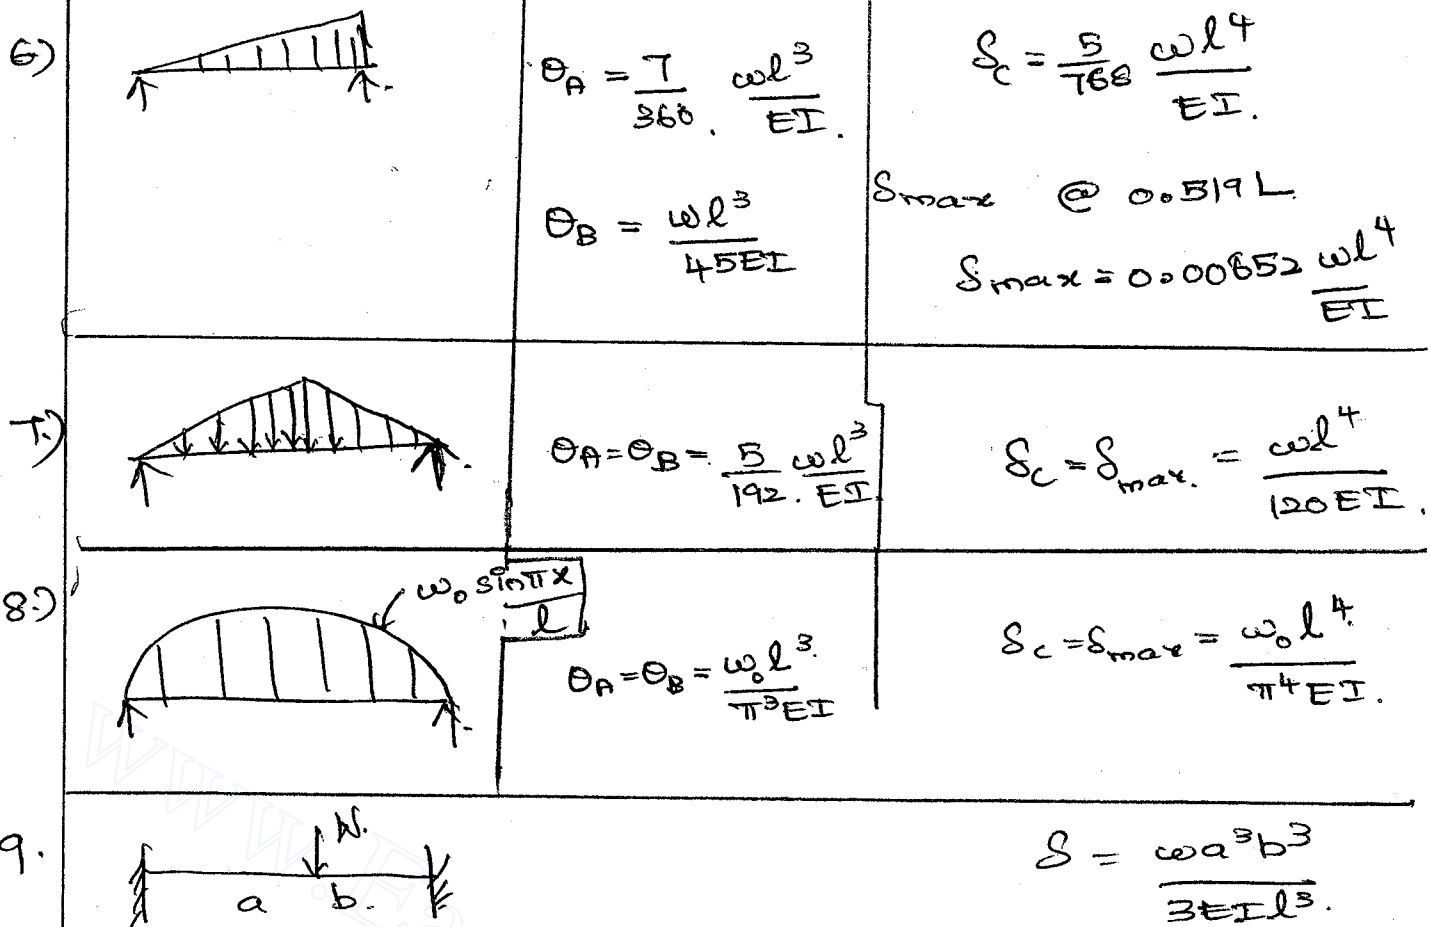 6) θA = 7/360 . wl³/EI . δc = 5/768 wl⁴/EI.
θB = wl³/45EI δmax @ 0.519L
δmax = 0.00652 wl⁴/EI
7.) θA = θB = 5/192 . wl³/EI δc = δmax. = wl⁴/120EI .
8.) w₀ sin πx/l
θA = θB = w₀l³/π³EI δc = δmax = w₀l⁴/π⁴EI .
9. W. a b. δ = wa³b³/3EIl³.